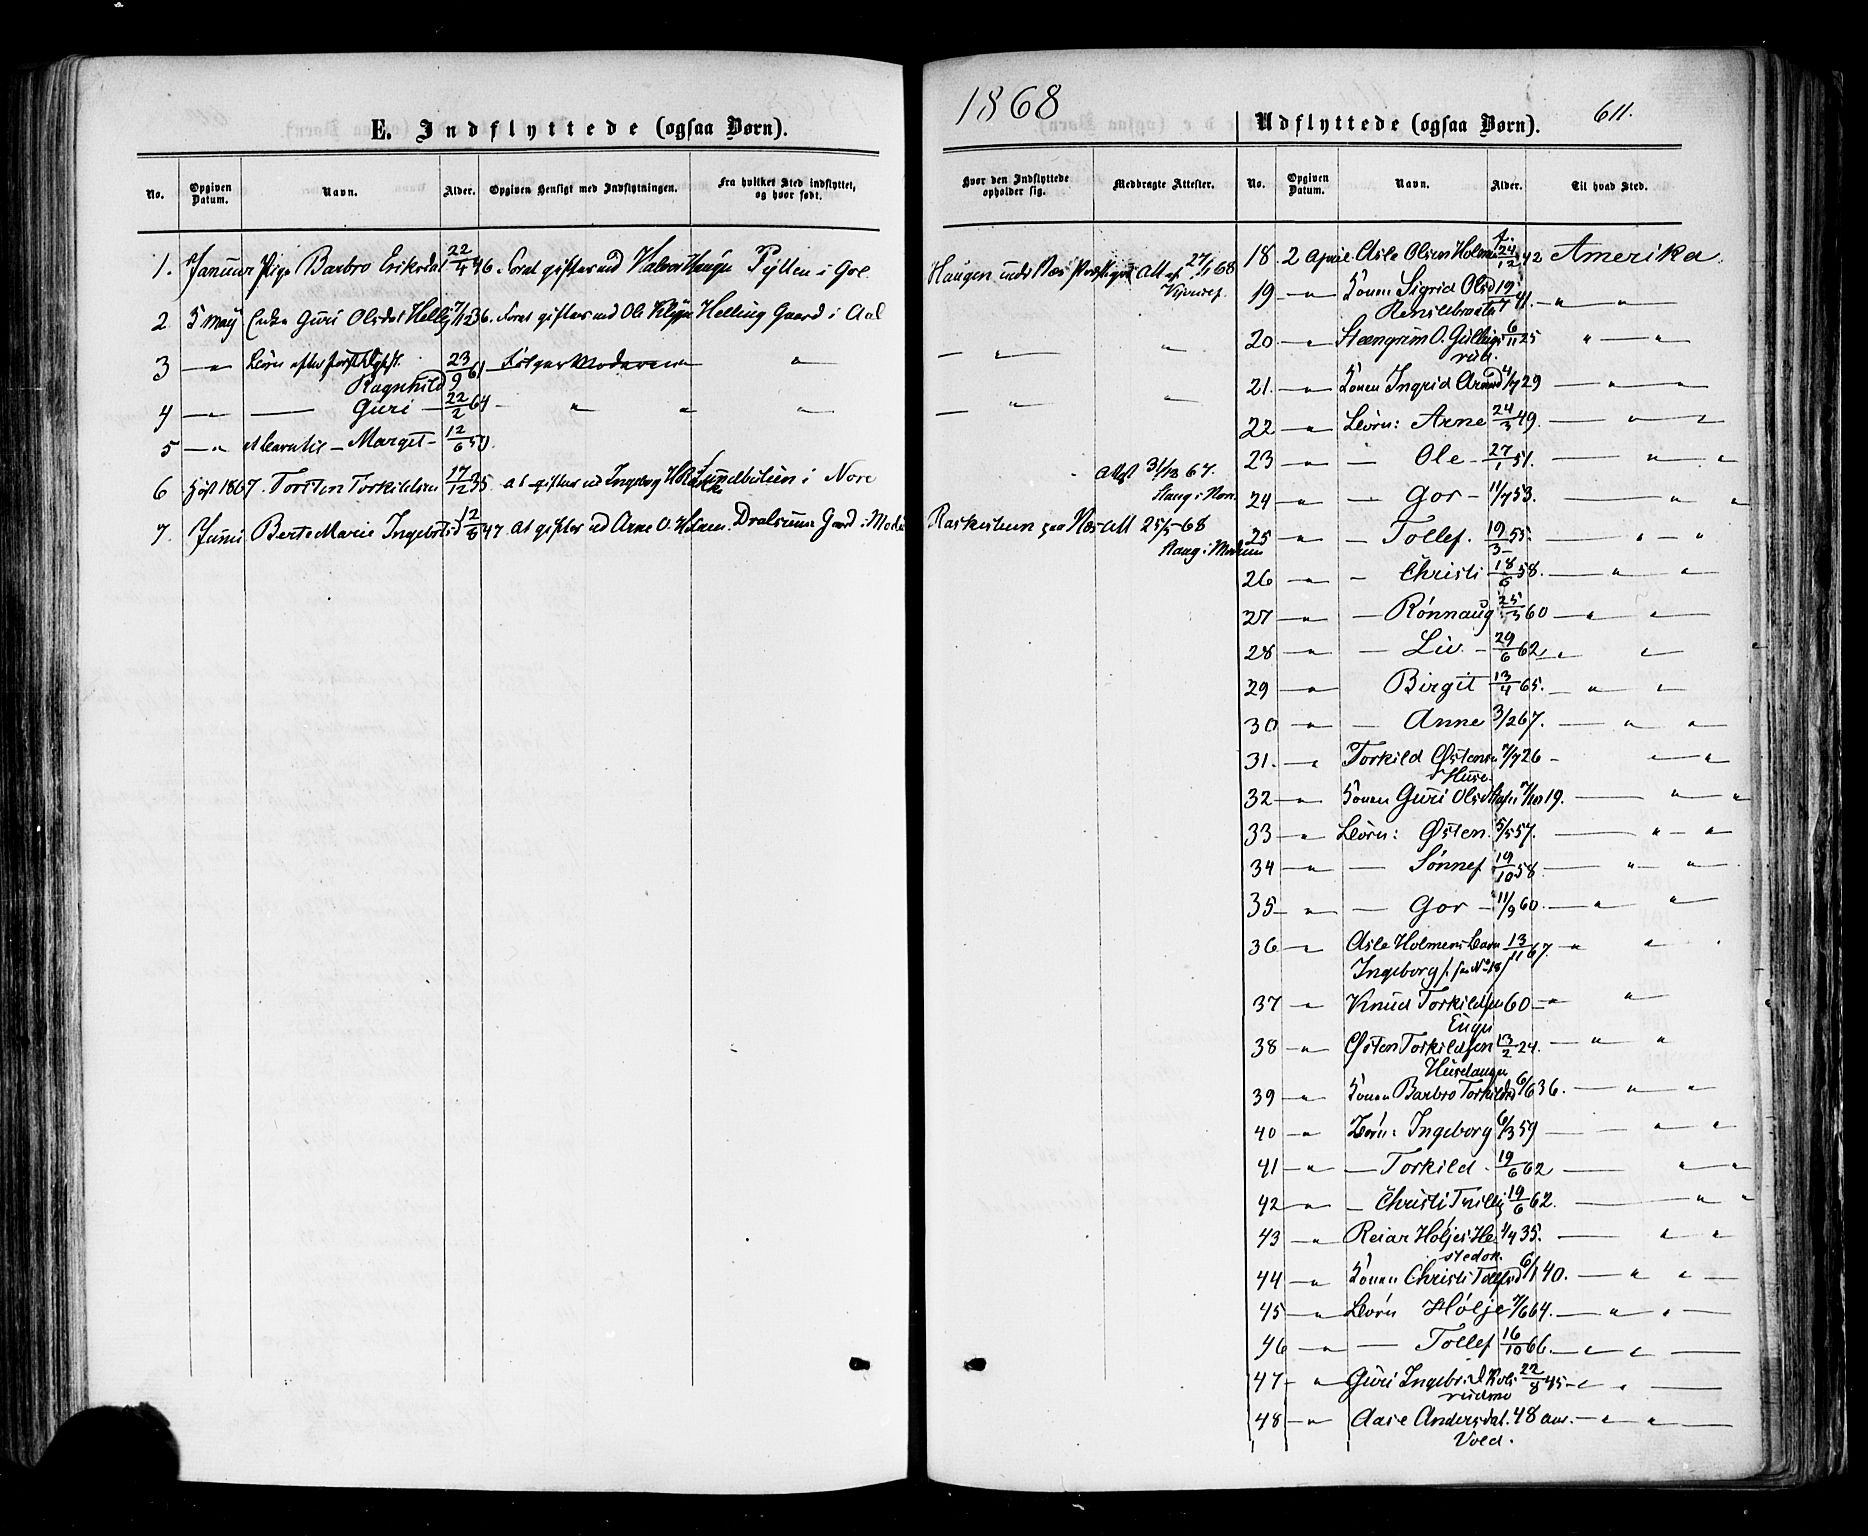 1868
E. Indflyttede (ogsaa Børn).
No. Opgiven Datum. Navn. Alder. Opgiven Hensigt med Indflytningen. Fra hvilket Sted indflyttet, og hvor født. Hvor den Indflyttede opholder sig. Medbragte Attester.
1. Januar Pige Barbro Eriksdat 22/4 46. foret giftes med Halvor Haugen Pytten i Gol Haugen Att af 27/1 68
2 5 May Enke Guri Olsdat Helling 7/12 36. foret giftes med Ole Helling Gaard i Aal
3 — " Børn efter første Ægtsk. Ragnhild 23/9 61 Følger Moderen " "
4 — " — Guri — 22/2 64 — " " "
5 — " — Marget — 12/6 50.
6 1867. Torsten Torkildsen 17/12 35. at giftes med Ingebg i Nore Att 31/12 67.
7. Juni Berte Marie Ingebrtsd 12/8 47 at giftes med Arne O. Dralsrum Gaard i Modum Att 25/5 — 68
Modum
Udflyttede (ogsaa Børn). 611.
No. Opgiven Datum. Navn. Alder. Til hvad Sted.
18. 2 April Asle Olsen Holmen 24/12 42 Amerika
19 — " Konen Sigrid Olsd 19/7 41. — " — "
20. — " Steengrim O. Gulliks rud. 6/11 25 " — "
21. — " Konen Ingrid Arnesd 4/7 29 — " — "
22 — " Børn: Arne 24/3 49. — " — "
23 — " — Ole — 27/1 51. — " — "
24 — " — Gor — 11/7 53. — " — "
25 — " — Tollef. 19/3 55. — " — "
26 — " — Christi 18/6 58. — " — "
27 — " — Rønnaug 25/3 60 — " — "
28 — " — Liv. — 29/6 62 — " — "
29 — " Birgit 13/4 65. — " — "
30 — " — Anne 3/2 67. — " — "
31. — " Torkild Østensen Huse 7/7 26 — — "
32 — " Konen Guri Olsd 7/10 19. — " — "
33 — " Børn: Østen. 5/5 57. — " — "
34 — " — Sønnef 19/10 58 — " — "
35 — " — Gor — 11/9 60. — " — "
36 — " Asle Holmens Barn Ingeborg /: see No 18 13/11 67. — " "
37 — " Knud Torkildsen Engen 60 — " "
38 — " Østen Torkildsen Husehaugen 13/2 24. — " "
39 — " Konen Barbro Torkildsd 6/6 36. — " — "
40 — " Børn: Ingeborg 6/3 59 — — " — "
41 — " — Torkild. 19/6 62 — " "
42 — " — Christi Tvilling 19/6 62. — " "
43 — " Reiar Høljes He stedok. 4/4 35. — " "
44 — " Konen Christi Tollefsd 6/1 40. — " " —
45 — " Børn Hølje 7/6 64. — " " —
46 — " — Tollef 16/10 66. — " " —
47 — " Guri Ingebr.d Kols rudmo 22/8 45 — " " —
48 — " Aase Andersdat. Vold. 48 aar. — " " —